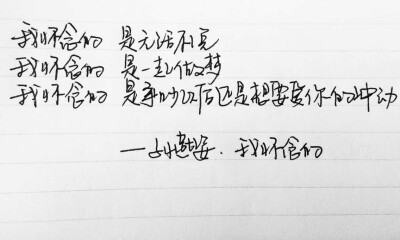 我怀念的 是无话不说
我怀念的 是一起做梦
我怀念的 是争吵以后还是想要爱你的冲动
——孙燕姿.我怀念的